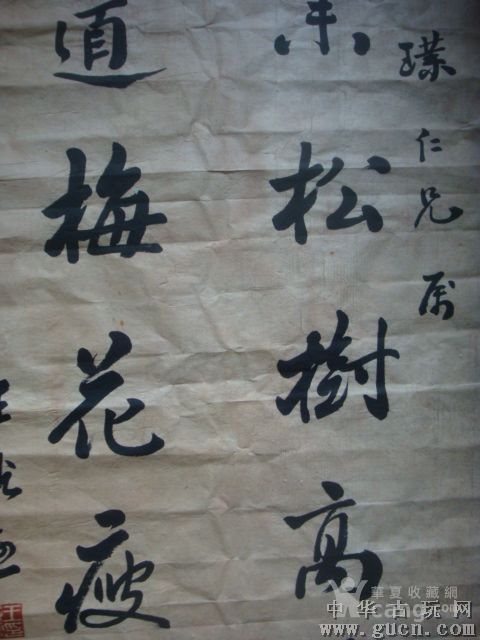 仁兄属
松樹高
道梅花瘦
華夏收藏網
cang.com
中华古玩网
www.gucn.com